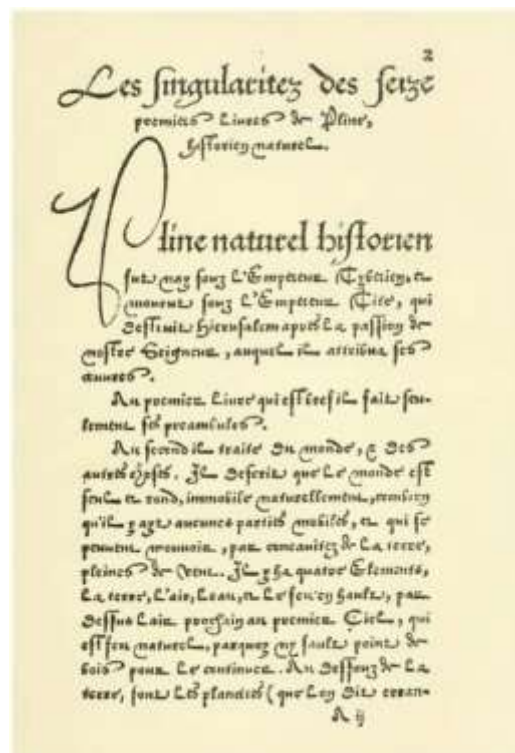 2
Les singularitez des seize
premiers Livres de Pline,
historien naturel.
Pline naturel historien
fut nay souz L'Empereur Tyberien, et
mourut souz L'Empereur Tite, qui
destruit Hierusalem apres La passion de
nostre Seigneur, auquel il attribua ses
œuvres.
Au premier Livre qui est bref il fait seu-
lement ses preambules.
Au second il traite du monde, & des
autres choses. Il descrit que Le monde est
seul et rond, immobile naturellement, combien
qu'il y ayt aucunes parties mobiles, et qui se
peuvent mouvoir, par concavitez de La terre,
pleines de vent. Il y ha quatre Elements,
La terre, L'air, L'eau, et Le feu en hault, par
dessus L'air prochain au premier Ciel, qui
est feu naturel, parquoy ny fault point de
bois pour Le continuer. Au dessouz de La
terre, sont Les planetes (que L'on dit erran-
A ij